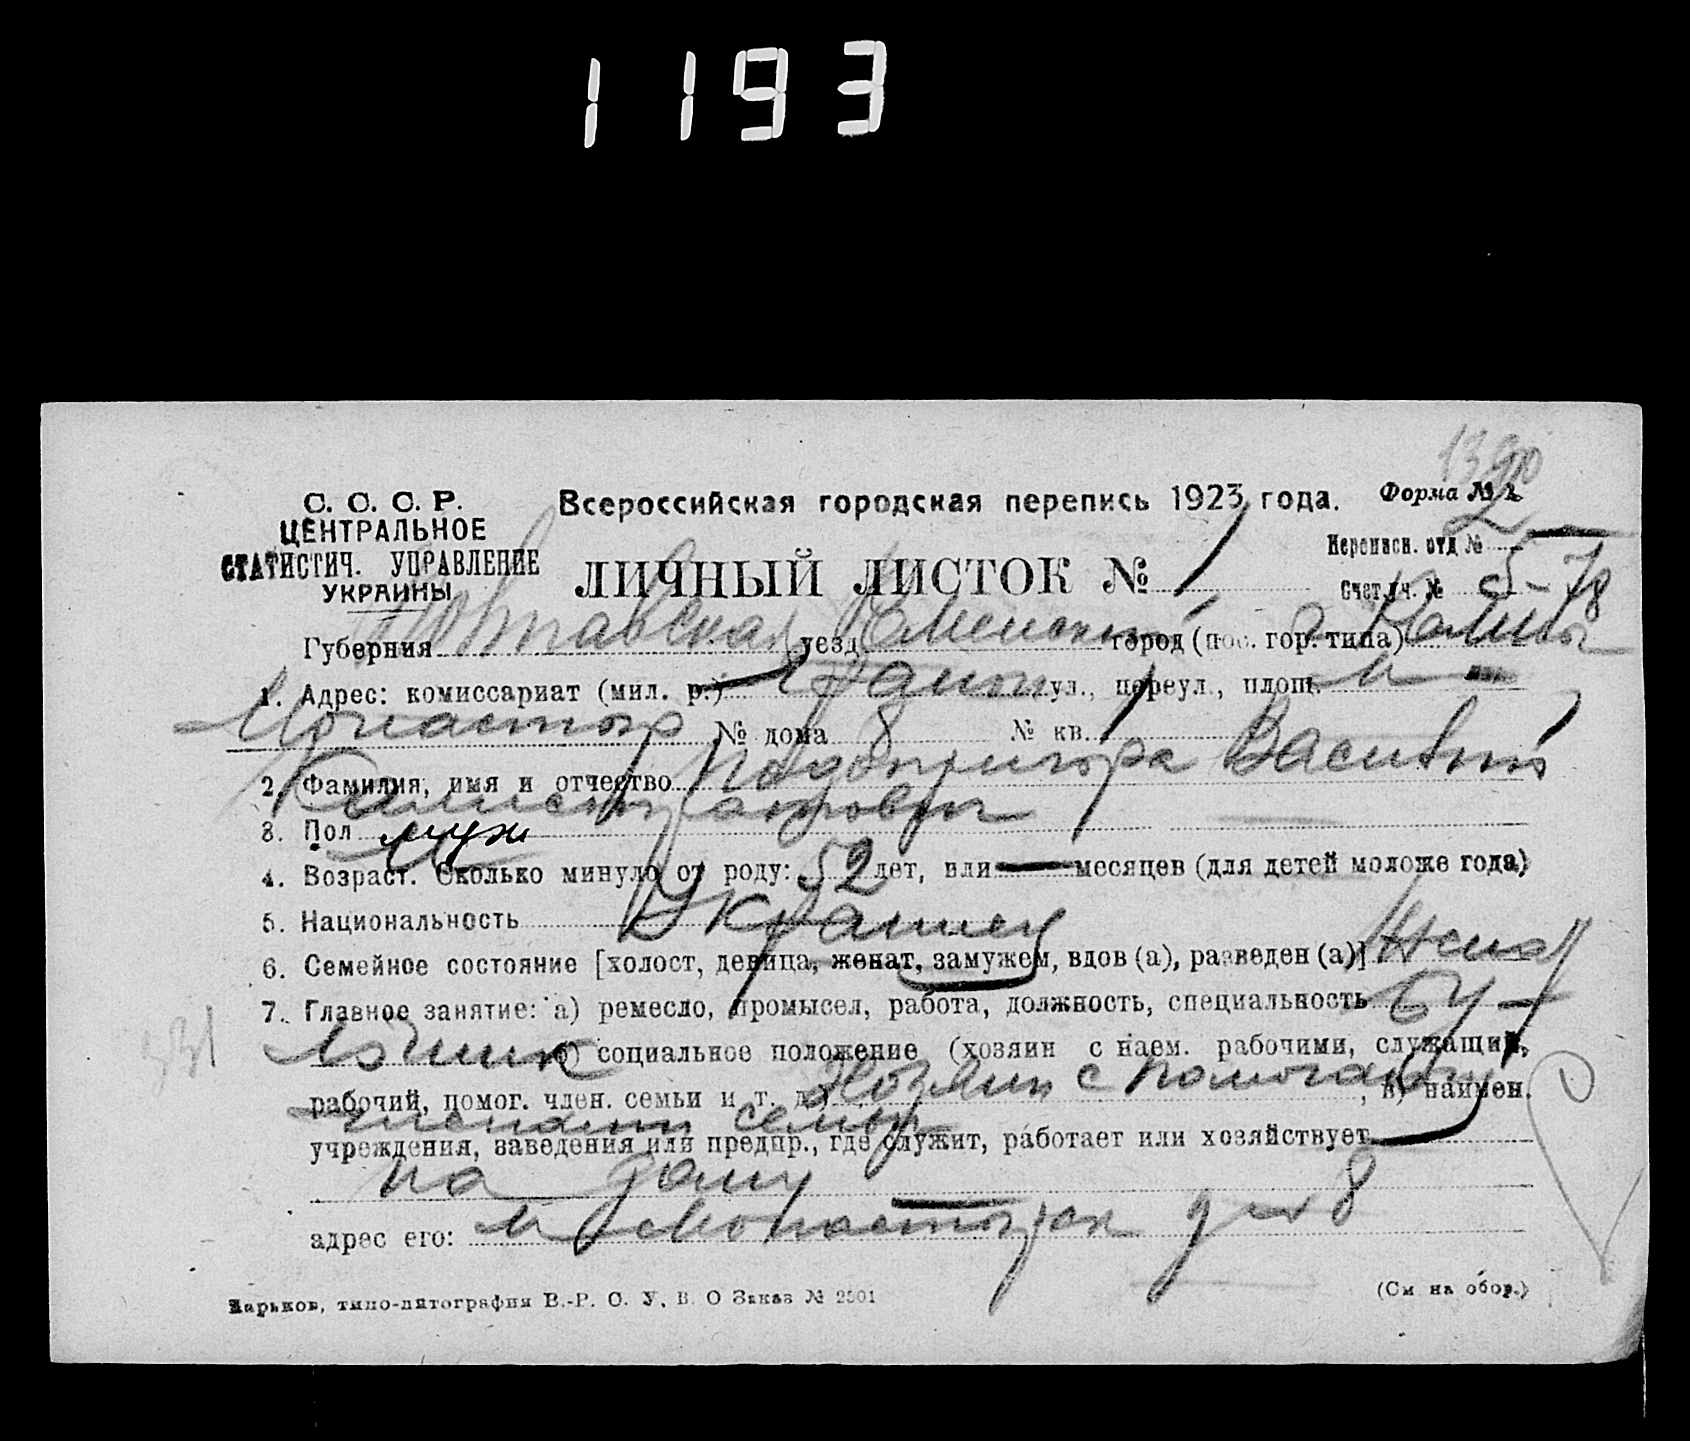 1193
1390
С. С. С. Р.
ЦЕНТРАЛЬНОЕ
СТАТИСТИЧ. УПРАВЛЕНИЕ
УКРАИНЫ
Всероссийская городская перепись 1923 года.
Форма № 1
ЛИЧНЫЙ ЛИСТОК № 1
Переписн. отд № 2
Счетч. № 5-78
Губерния Полтавская уезд Роменский город (пос. гор. типа) г Ромны
1. Адрес: комиссариат (мил. р.) 1 Район ул., переул., площ. м
Монастыр № дома 8 № кв.
2. Фамилия, имя и отчество Подопригора Василий
Калистратович
3. Пол муж
4. Возраст. Сколько минуло от роду: 52 лет, или — месяцев (для детей моложе года)
5. Национальность Украинец
6. Семейное состояние [холост, девица, женат, замужем, вдов (а), разведен (а)] Женат
7. Главное занятие: а) ремесло, промысел, работа, должность, специальность
б) социальное положение (хозяин с наем. рабочими, служащий,
рабочий, помог. член. семьи и т. д.) Хозяин с помогающ , в) наимен.
членами семьи
учреждения, заведения или предпр., где служит, работает или хозяйствует
на дому
адрес его: м Монастырск 8
Харьков, типо-литография В.-Р. С. У. В. О Заказ № 2501
(См на обор.)